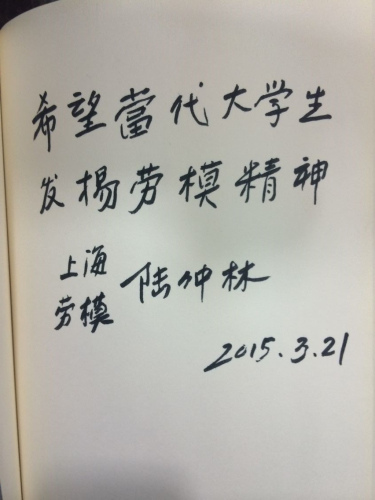 希望當代大学生
发揚劳模精神
上海
劳模
陆仲林
2015.3.21